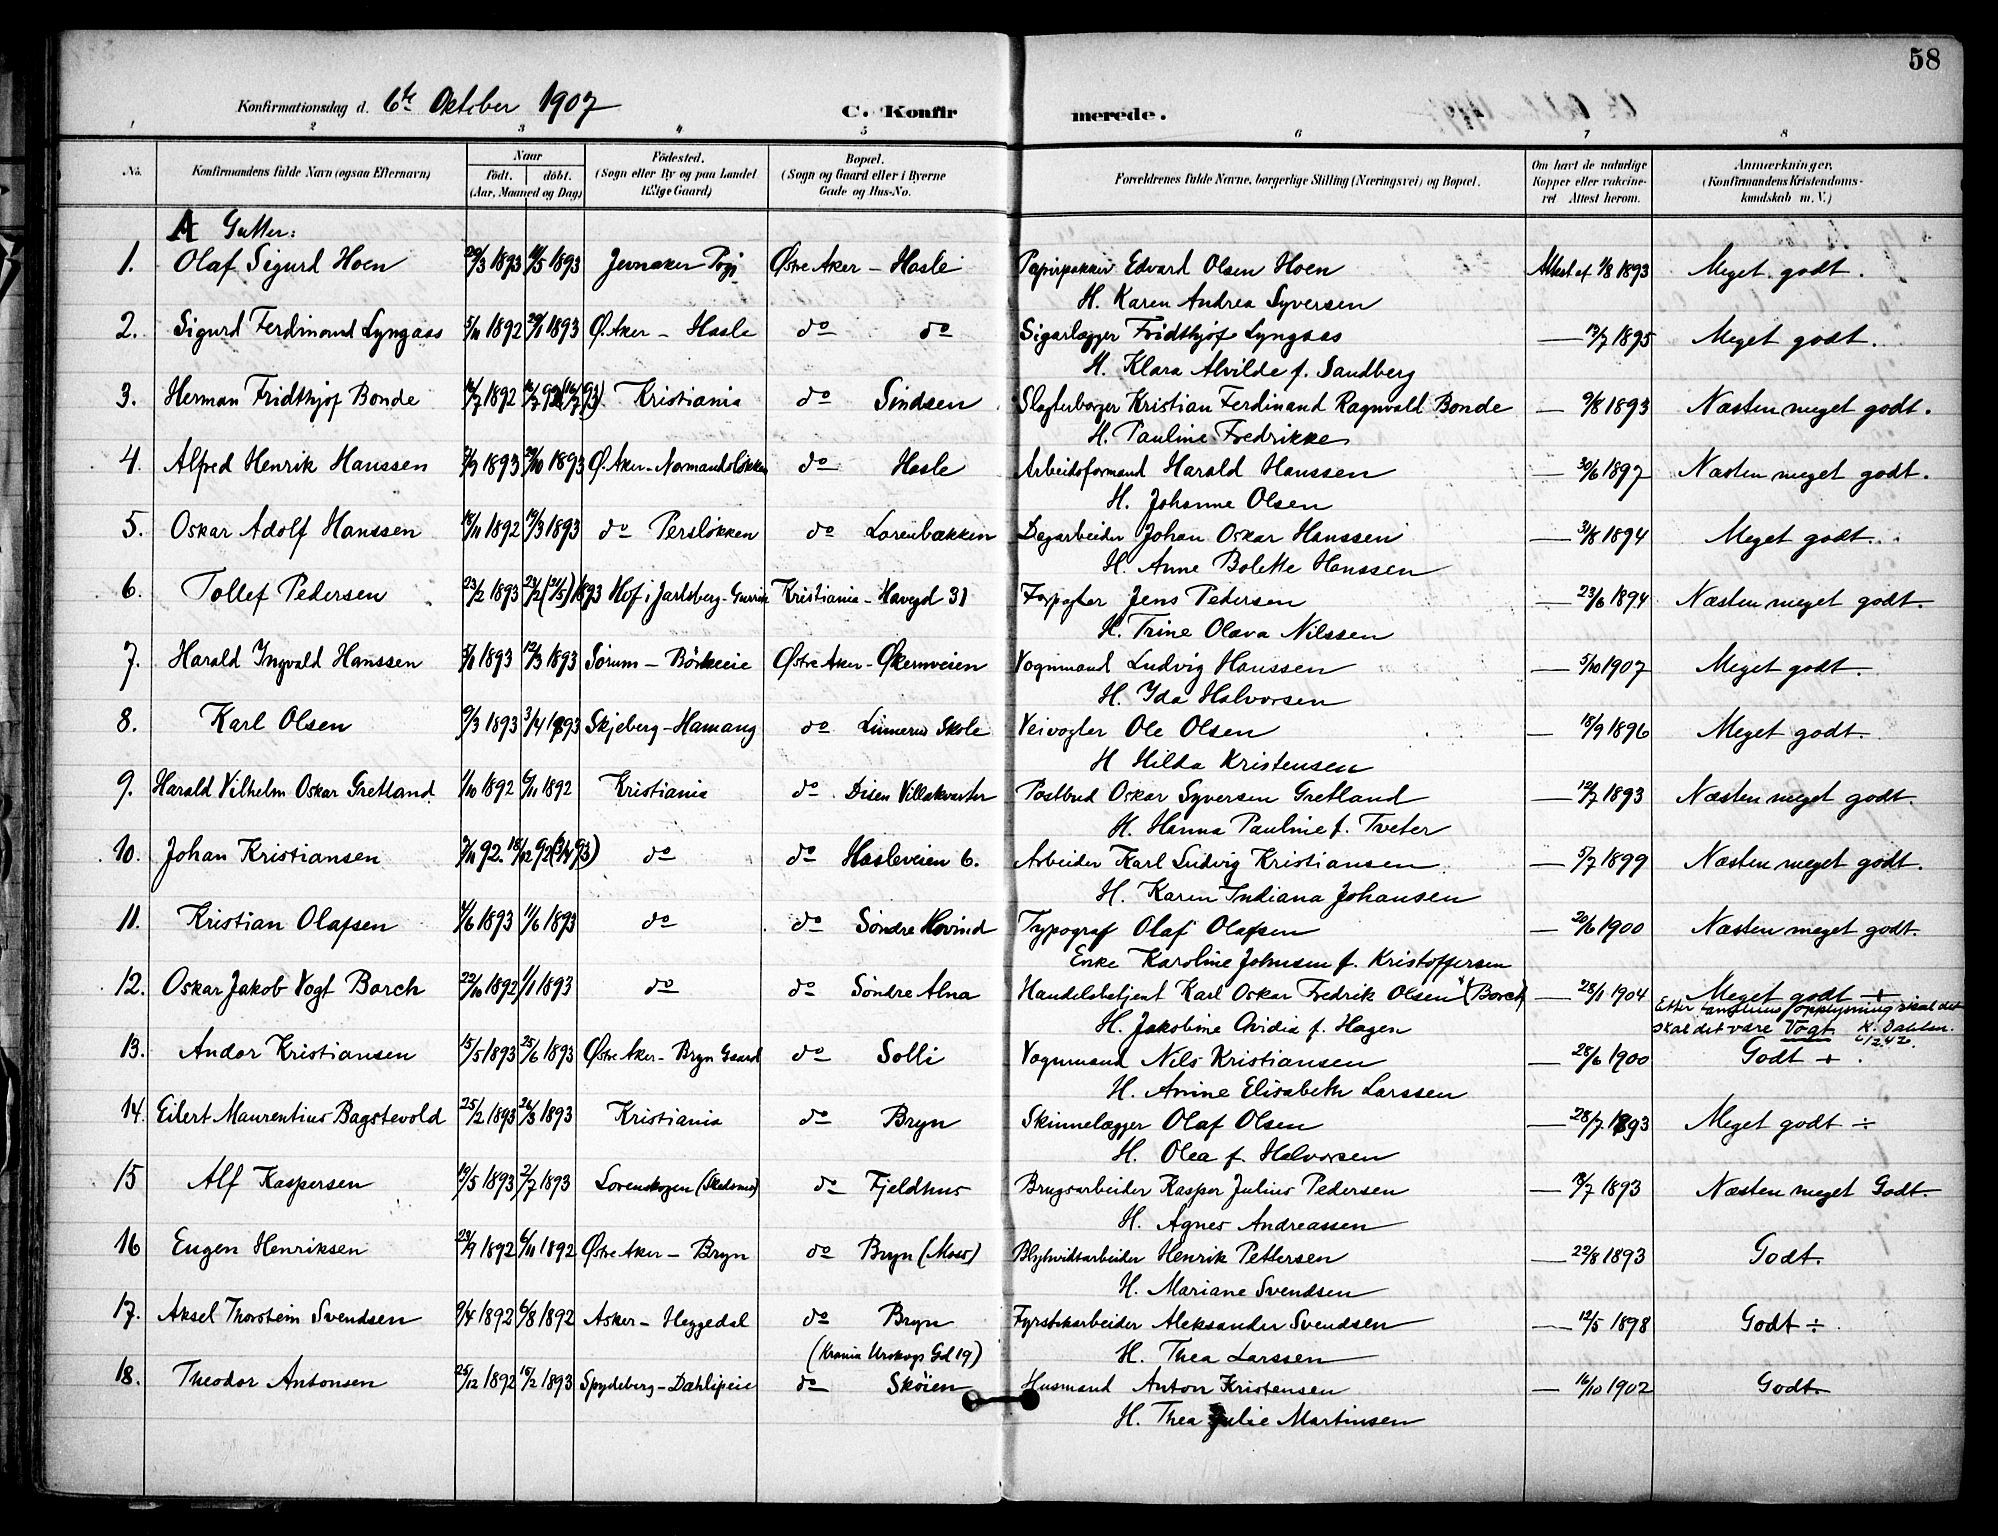 58
Konfirmationsdag d. 6te October 1907
C. Konfirmerede.
1 2 3 4 5 6 7 8
No. Konfirmandens fulde Navn (ogsaa Efternavn) Naar født. døbt. (Aar, Maaned og Dag) Födested. (Sogn eller By og paa Landet tillige Gaard) Bopæl. (Sogn og Gaard eller i Byerne Gade og Hus-No. Forældrenes fulde Navne, borgerlige Stilling (Næringsvei) og Bopæl. Om havt de naturlige Kopper eller vakcineret Attest herom. Anmærkninger, (Konfirmandens Kristendomskundskab m. V.)
A Gutter:
1. Olaf Sigurd Hoen 1893 1893 Jevnaker Østre Aker - Hasle Papirpakker Edvard Olsen Hoen Attest af 1/8 1893 Meget godt.
H. Karen Andrea Syversen
2. Sigurd Ferdinand Lyngaas 1892 1893 Ø. Aker - Hasle do do Sigarlægger Fridthjof Lyngaas — 13/7 1895 Meget godt.
H. Klara Alvilde f. Sandberg
3. Herman Fridthjof Bonde 1892 Kristiania do Sindsen Slagterborger Kristian Ferdinand Ragnvald Bonde — 9/8 1893 Næsten meget godt.
H. Pauline Fredrikke
4. Alfred Henrik Hanssen 1893 1893 Ø. Aker - Normandsløkken do Hasle Arbeidsformand Harald Hanssen — 30/6 1897 Næsten meget godt.
H. Johanne Olsen
5. Oskar Adolf Hanssen 18/11 1892 19/3 1893 do Persløkken do Lørenbakken Dagarbeider Johan Oskar Hanssen — 31/8 1894 Meget godt.
H. Anne Bolette Hanssen
6. Tollef Pedersen 23/2 1893 23/2 (21/5) 1893 Hof i Jarlsberg - Kristiania - Havegd 31 Forpagter Jens Pedersen — 23/6 1894 Næsten meget godt.
H. Trine Olava Nilssen
7. Harald Ingvald Hanssen 1893 12/3 1893 Sørum - Børkeeie Østre Aker - Økernveien Vognmand Ludvig Hanssen — 5/10 1907 Meget godt.
H. Ida Halvorsen
8. Karl Olsen 9/3 1893 3/4 1893 Skjeberg - Hamang do Linnerud Skole Veivogter Ole Olsen — 18/9 1896 Meget godt.
H Hilda Kristensen
9. Harald Vilhelm Oskar Gretland 1/10 1892 6/11 1892 Kristiania do Disen Villakvarter Postbud Oskar Syversen Gretland — 19/7 1893 Næsten meget godt.
H. Hanna Pauline f. Tveter
10. Johan Kristiansen do do Hasleveien 6. Arbeider Karl Ludvig Kristiansen — 5/7 1899 Næsten meget godt.
H. Karen Indiana Johansen
11. Kristian Olafsen 4/6 1893 11/6 1893 do do Søndre Hovind Typograf Olaf Olafsen — 20/6 1900 Næsten meget godt.
Enke Karoline Johnsen f. Kristoffersen
12. Oskar Jakob Vogt Borch 22/10 1892 1/1 1893 do do Søndre Alna Handelsbetjent Karl Oskar Fredrik Olsen (Borch) — 28/1 1904 Meget godt +
H. Jakobine Ovidia f. Hagen Efter familiens opplysning skal det
skal det være Vogt K. Dahlen. 6/2.42.
13. Andor Kristiansen 15/5 1893 25/6 1893 Østre Aker - Bryn Gaard do Solli Vognmand Nils Kristiansen — 28/6 1900 Godt +.
H. Anine Elisabeth Larssen
14. Eilert Maurentius Bagstevold 25/2 1893 26/3 1893 Kristiania do Bryn Skinnelægger Olaf Olsen — 28/7. 1893 Meget godt ÷
H. Olea f. Halvorsen
15 Alf Kaspersen 19/5 1893 2/7 1893 Lørenskogen (Skedsmo) do Fjeldhus Brugsarbeider Kasper Julius Pedersen — 18/7 1893 Næsten meget Godt.
H. Agnes Andreassen
16 Eugen Henriksen 23/9 1892 6/11 1892 Østre Aker - Bryn do Bryn (Moss) Blyhvidtarbeider Henrik Pettersen — 22/8 1893 Godt.
H. Mariane Svendsen
17. Aksel Thorstein Svendsen 9/4 1892 6/8 1892 Asker - Heggedal do Bryn Fyrstikarbeider Aleksander Svendsen — 12/5 1898 Godt ÷
(Krania Urskogs Gd 19) H. Thea Larssen
18. Theodor Antonsen 25/12 1892 15/2 1893 Spydeberg - Dahlipeie do Skøien Husmand Anton Kristensen — 16/10 1902 Godt.
H. Thea Julie Martinsen